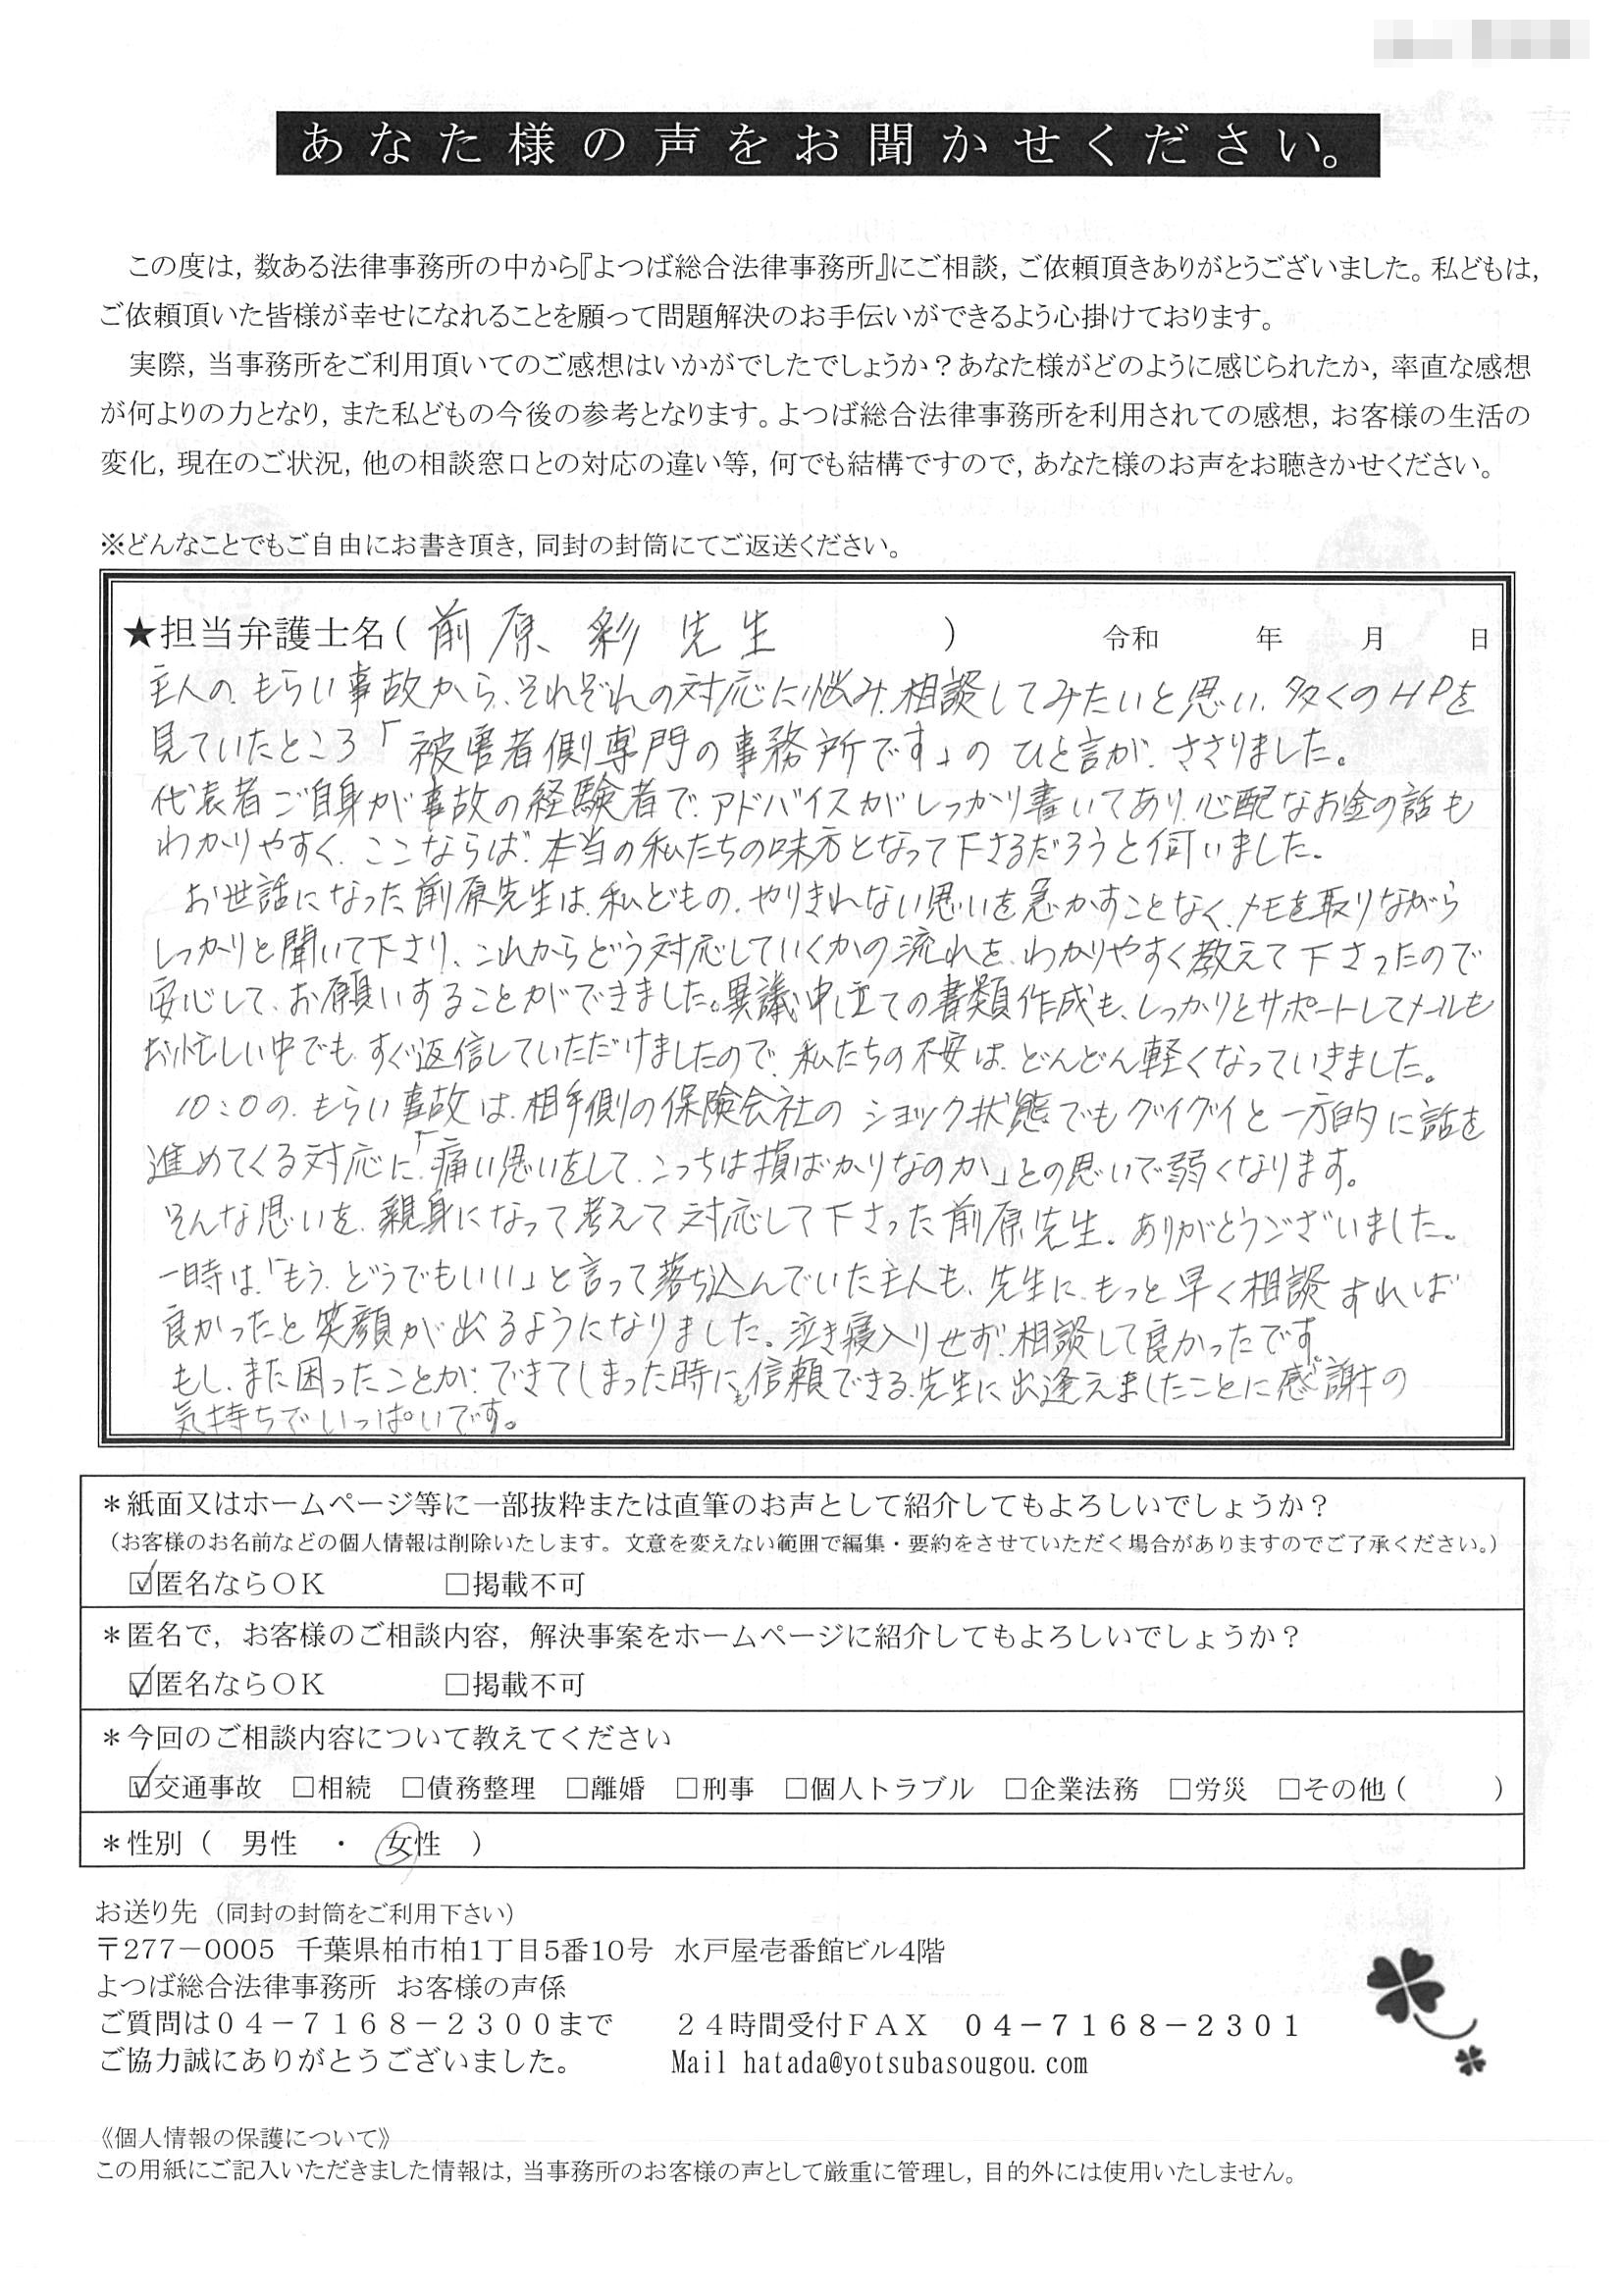 あなた様の声をお聞かせください。
この度は，数ある法律事務所の中から『よつば総合法律事務所』にご相談，ご依頼頂きありがとうございました。私どもは，
ご依頼頂いた皆様が幸せになれることを願って問題解決のお手伝いができるよう心掛けております。
実際，当事務所をご利用頂いてのご感想はいかがでしたでしょうか？あなた様がどのように感じられたか，率直な感想
が何よりの力となり，また私どもの今後の参考となります。よつば総合法律事務所を利用されての感想，お客様の生活の
変化，現在のご状況，他の相談窓口との対応の違い等，何でも結構ですので，あなた様のお声をお聴きかせください。
※どんなことでもご自由にお書き頂き，同封の封筒にてご返送ください。
★担当弁護士名（ 前原 彩 先生 ） 令和 年 月 日
主人の、もらい事故から、それぞれの対応に悩み、相談してみたいと思い、多くのHPを
見ていたところ「被害者側専門の事務所です」の ひと言が、ささりました。
代表者ご自身が事故の経験者で、アドバイスがしっかり書いてあり、心配なお金の話も
わかりやすく、ここならば、本当の私たちの味方となって下さるだろうと伺いました。
お世話になった前原先生は、私どもの、やりきれない思いを急かすことなく、メモを取りながら
しっかりと聞いて下さり、これからどう対応していくかの流れを、わかりやすく教えて下さったので
安心して、お願いすることができました。異議申し立ての書類作成も、しっかりとサポートしてメールも
お忙しい中でも、すぐ返信していただけましたので、私たちの不安は、どんどん軽くなっていきました。
10:0の、もらい事故は、相手側の保険会社の ショック状態でもグイグイと一方的に話を
進めてくる対応に、「痛い思いをして、こっちは損ばかりなのか」との思いで弱くなります。
そんな思いを、親身になって考えて対応して下さった前原先生。ありがとうございました。
一時は、「もう、どうでもいい」と言って落ち込んでいた主人も、先生に、もっと早く相談すれば
良かったと笑顔が出るようになりました。泣き寝入りせず、相談して良かったです。
もし、また困ったことが、できてしまった時にも信頼できる先生に出逢えましたことに感謝の
気持ちでいっぱいです。
＊紙面又はホームページ等に一部抜粋または直筆のお声として紹介してもよろしいでしょうか？
（お客様のお名前などの個人情報は削除いたします。文意を変えない範囲で編集・要約をさせていただく場合がありますのでご了承ください。）
☑匿名ならＯＫ □掲載不可
＊匿名で，お客様のご相談内容，解決事案をホームページに紹介してもよろしいでしょうか？
☑匿名ならＯＫ □掲載不可
＊今回のご相談内容について教えてください
☑交通事故 □相続 □債務整理 □離婚 □刑事 □個人トラブル □企業法務 □労災 □その他（ ）
＊性別（ 男性 ・ 女性 ）
お送り先（同封の封筒をご利用下さい）
〒277－0005 千葉県柏市柏1丁目5番10号 水戸屋壱番館ビル4階
よつば総合法律事務所 お客様の声係
ご質問は０４－７１６８－２３００まで ２４時間受付ＦＡＸ ０４－７１６８－２３０１
ご協力誠にありがとうございました。 Mail hatada@yotsubasougou.com
《個人情報の保護について》
この用紙にご記入いただきました情報は，当事務所のお客様の声として厳重に管理し，目的外には使用いたしません。